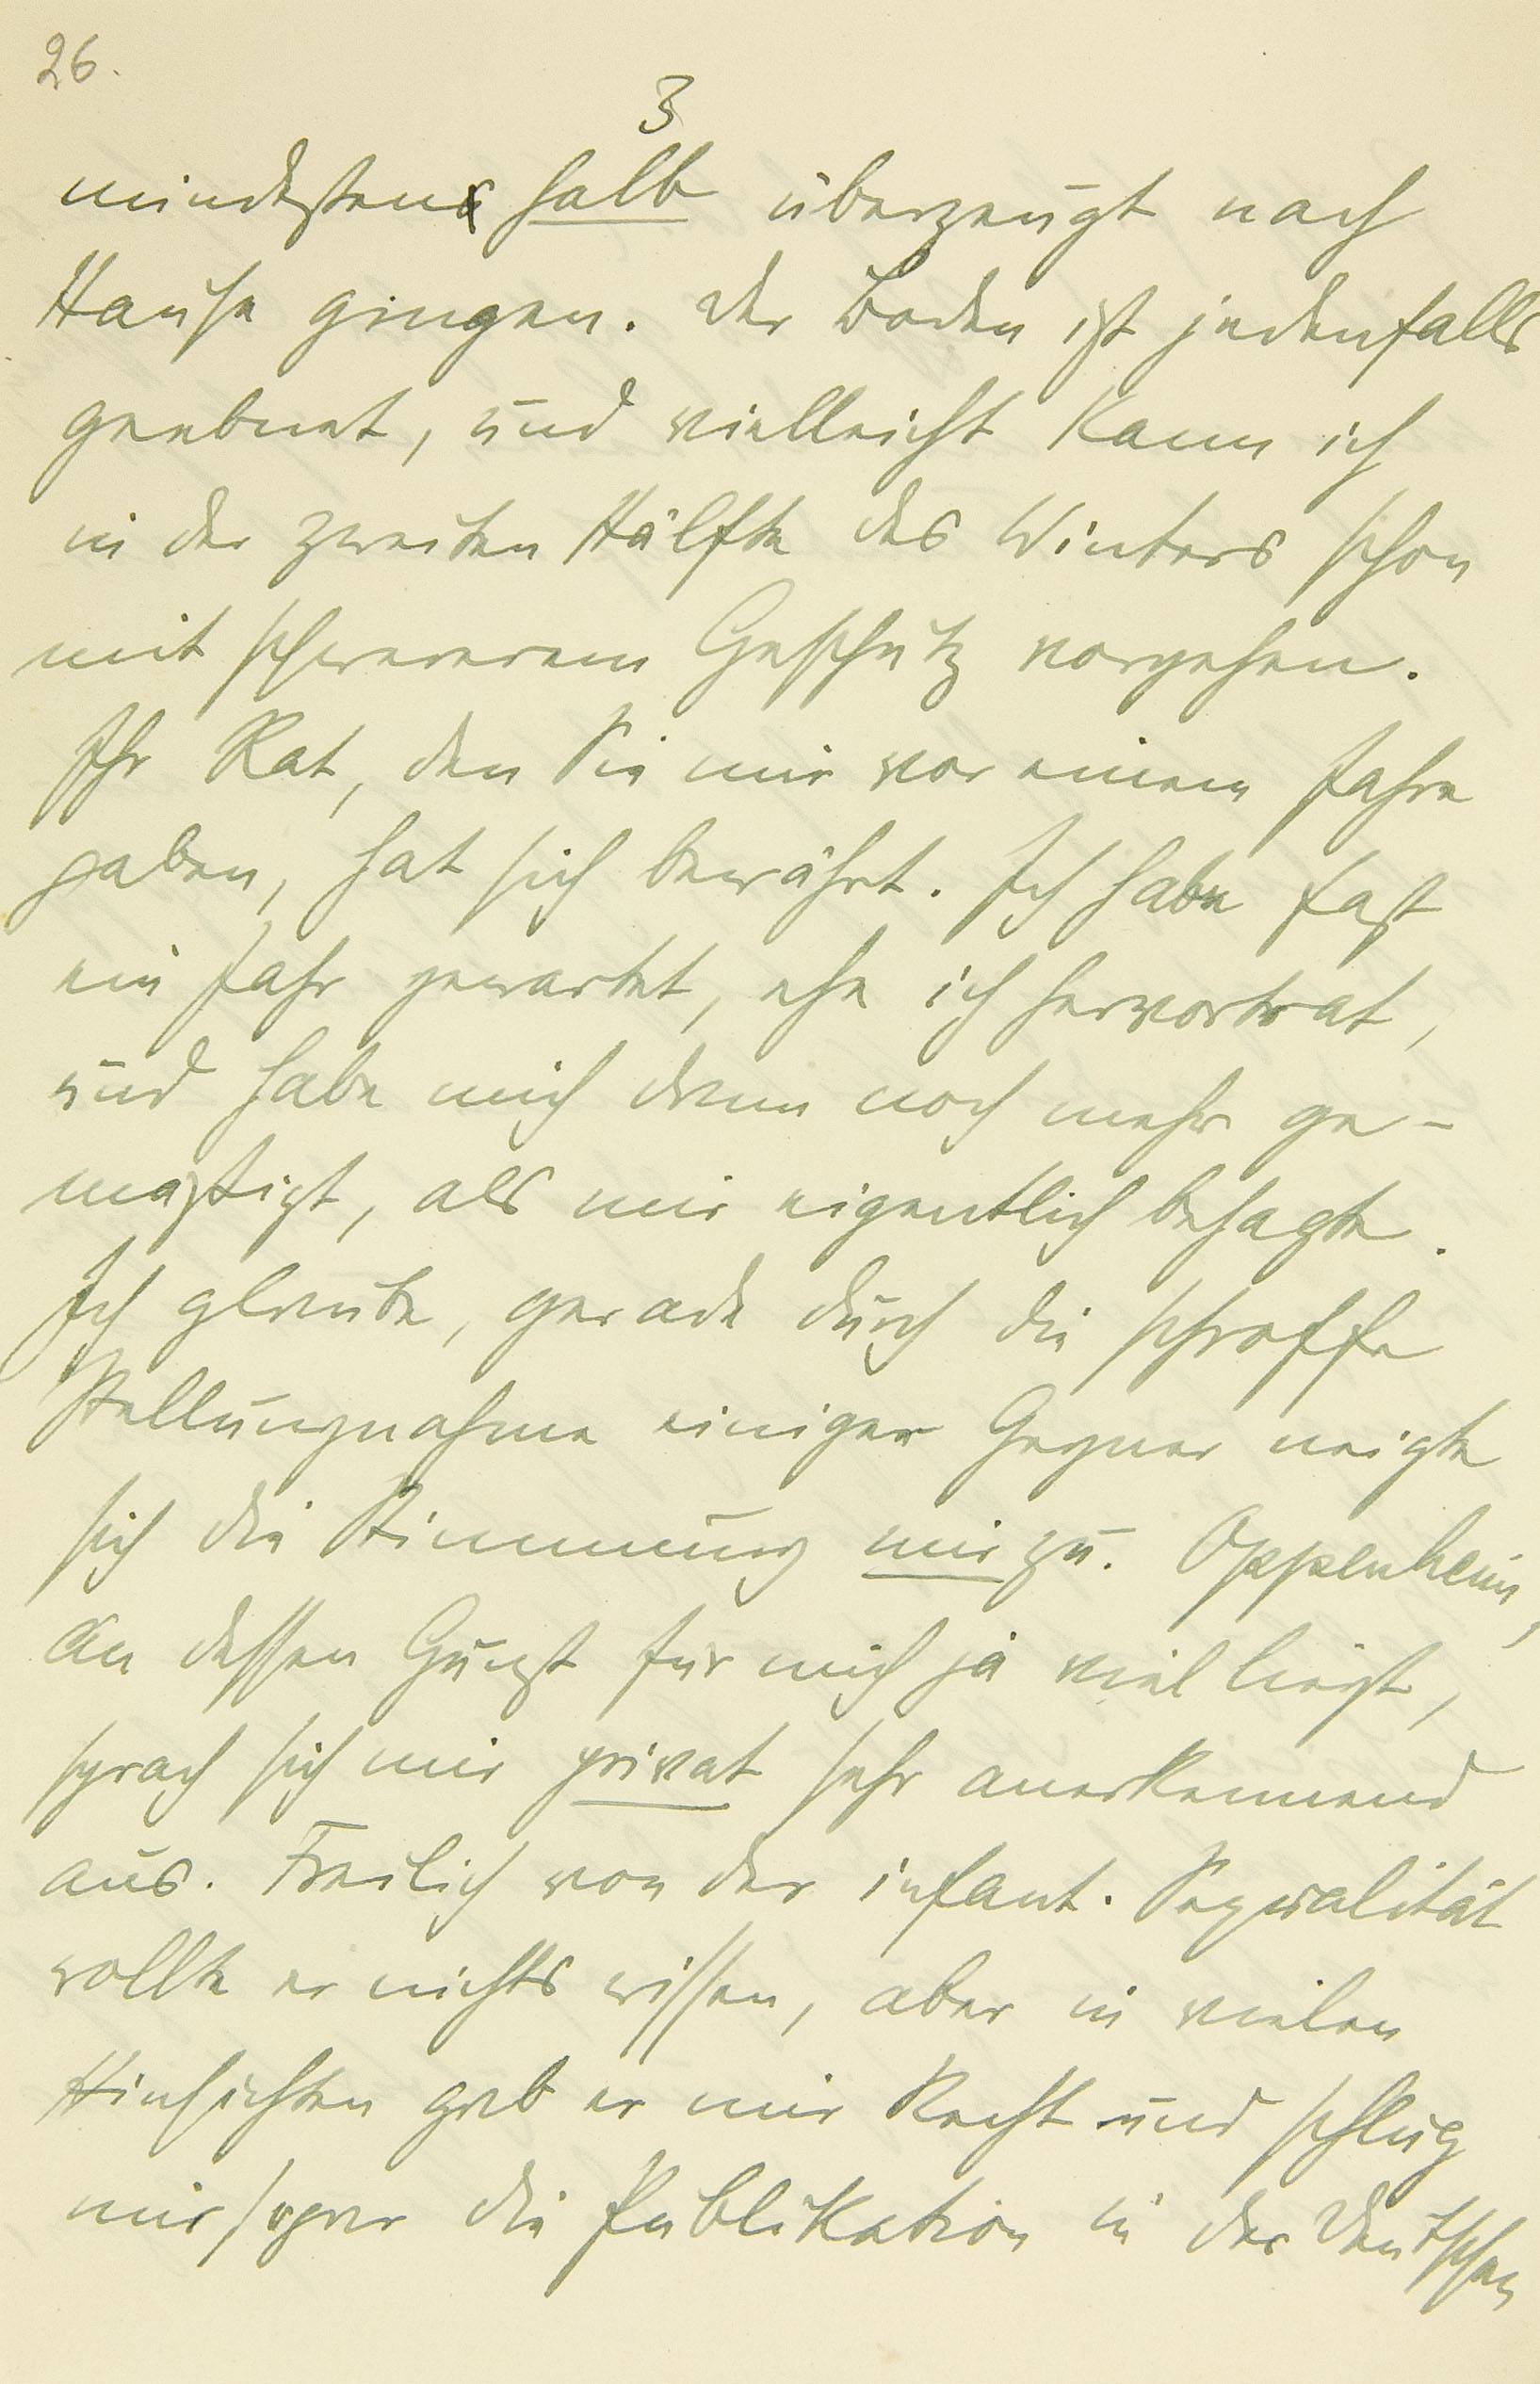 26.
3
mindestens halb überzeugt nach
Hause gingen. Der Boden ist jedenfalls
geebnet, und vielleicht kann ich
in der zweiten Hälfte des Winters schon
mit schwererem Geschütz vorgehen.
Ihr Rat, den Sie mir vor einem Jahre
gaben, hat sich bewährt. Ich habe fast
ein Jahr gewartet, ehe ich hervortrat,
und habe mich dann noch mehr ge-
mäßigt, als mir eigentlich behagte.
Ich glaube, gerade durch die schroffe
Stellungnahme einiger Gegner neigte
sich die Stimmung mir zu. Oppenheim,
an dessen Gunst für mich ja viel liegt,
sprach sich mir privat sehr anerkennend
aus. Freilich von der infant. Sexualität
wollte er nichts wissen, aber in vielen
Hinsichten gab er mir Recht und schlug
mir sogar die Publikation in der Deutschen